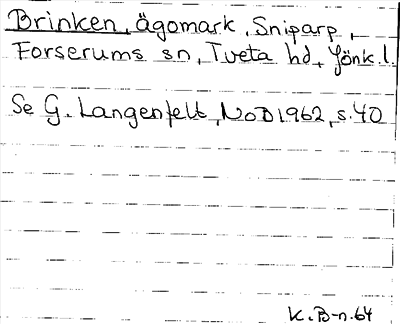 Brinken, ägomark, Sniparp,
Forserums sn, Tveta hd, Jönk.l.
Se G. Langenfelt, NoB 1962, s.40
K.B-n.64